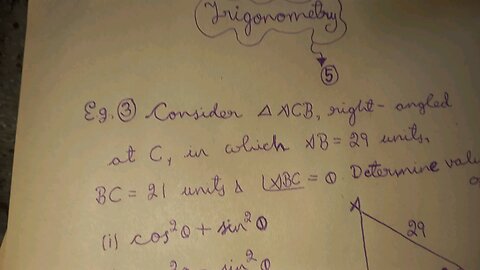 Trigonometry
5
Eg. 3 Consider △ ACB, right-angled
at C, in which AB = 29 units,
BC = 21 units & ∠ABC = θ. Determine
(i) cos²θ + sin²θ
A
29